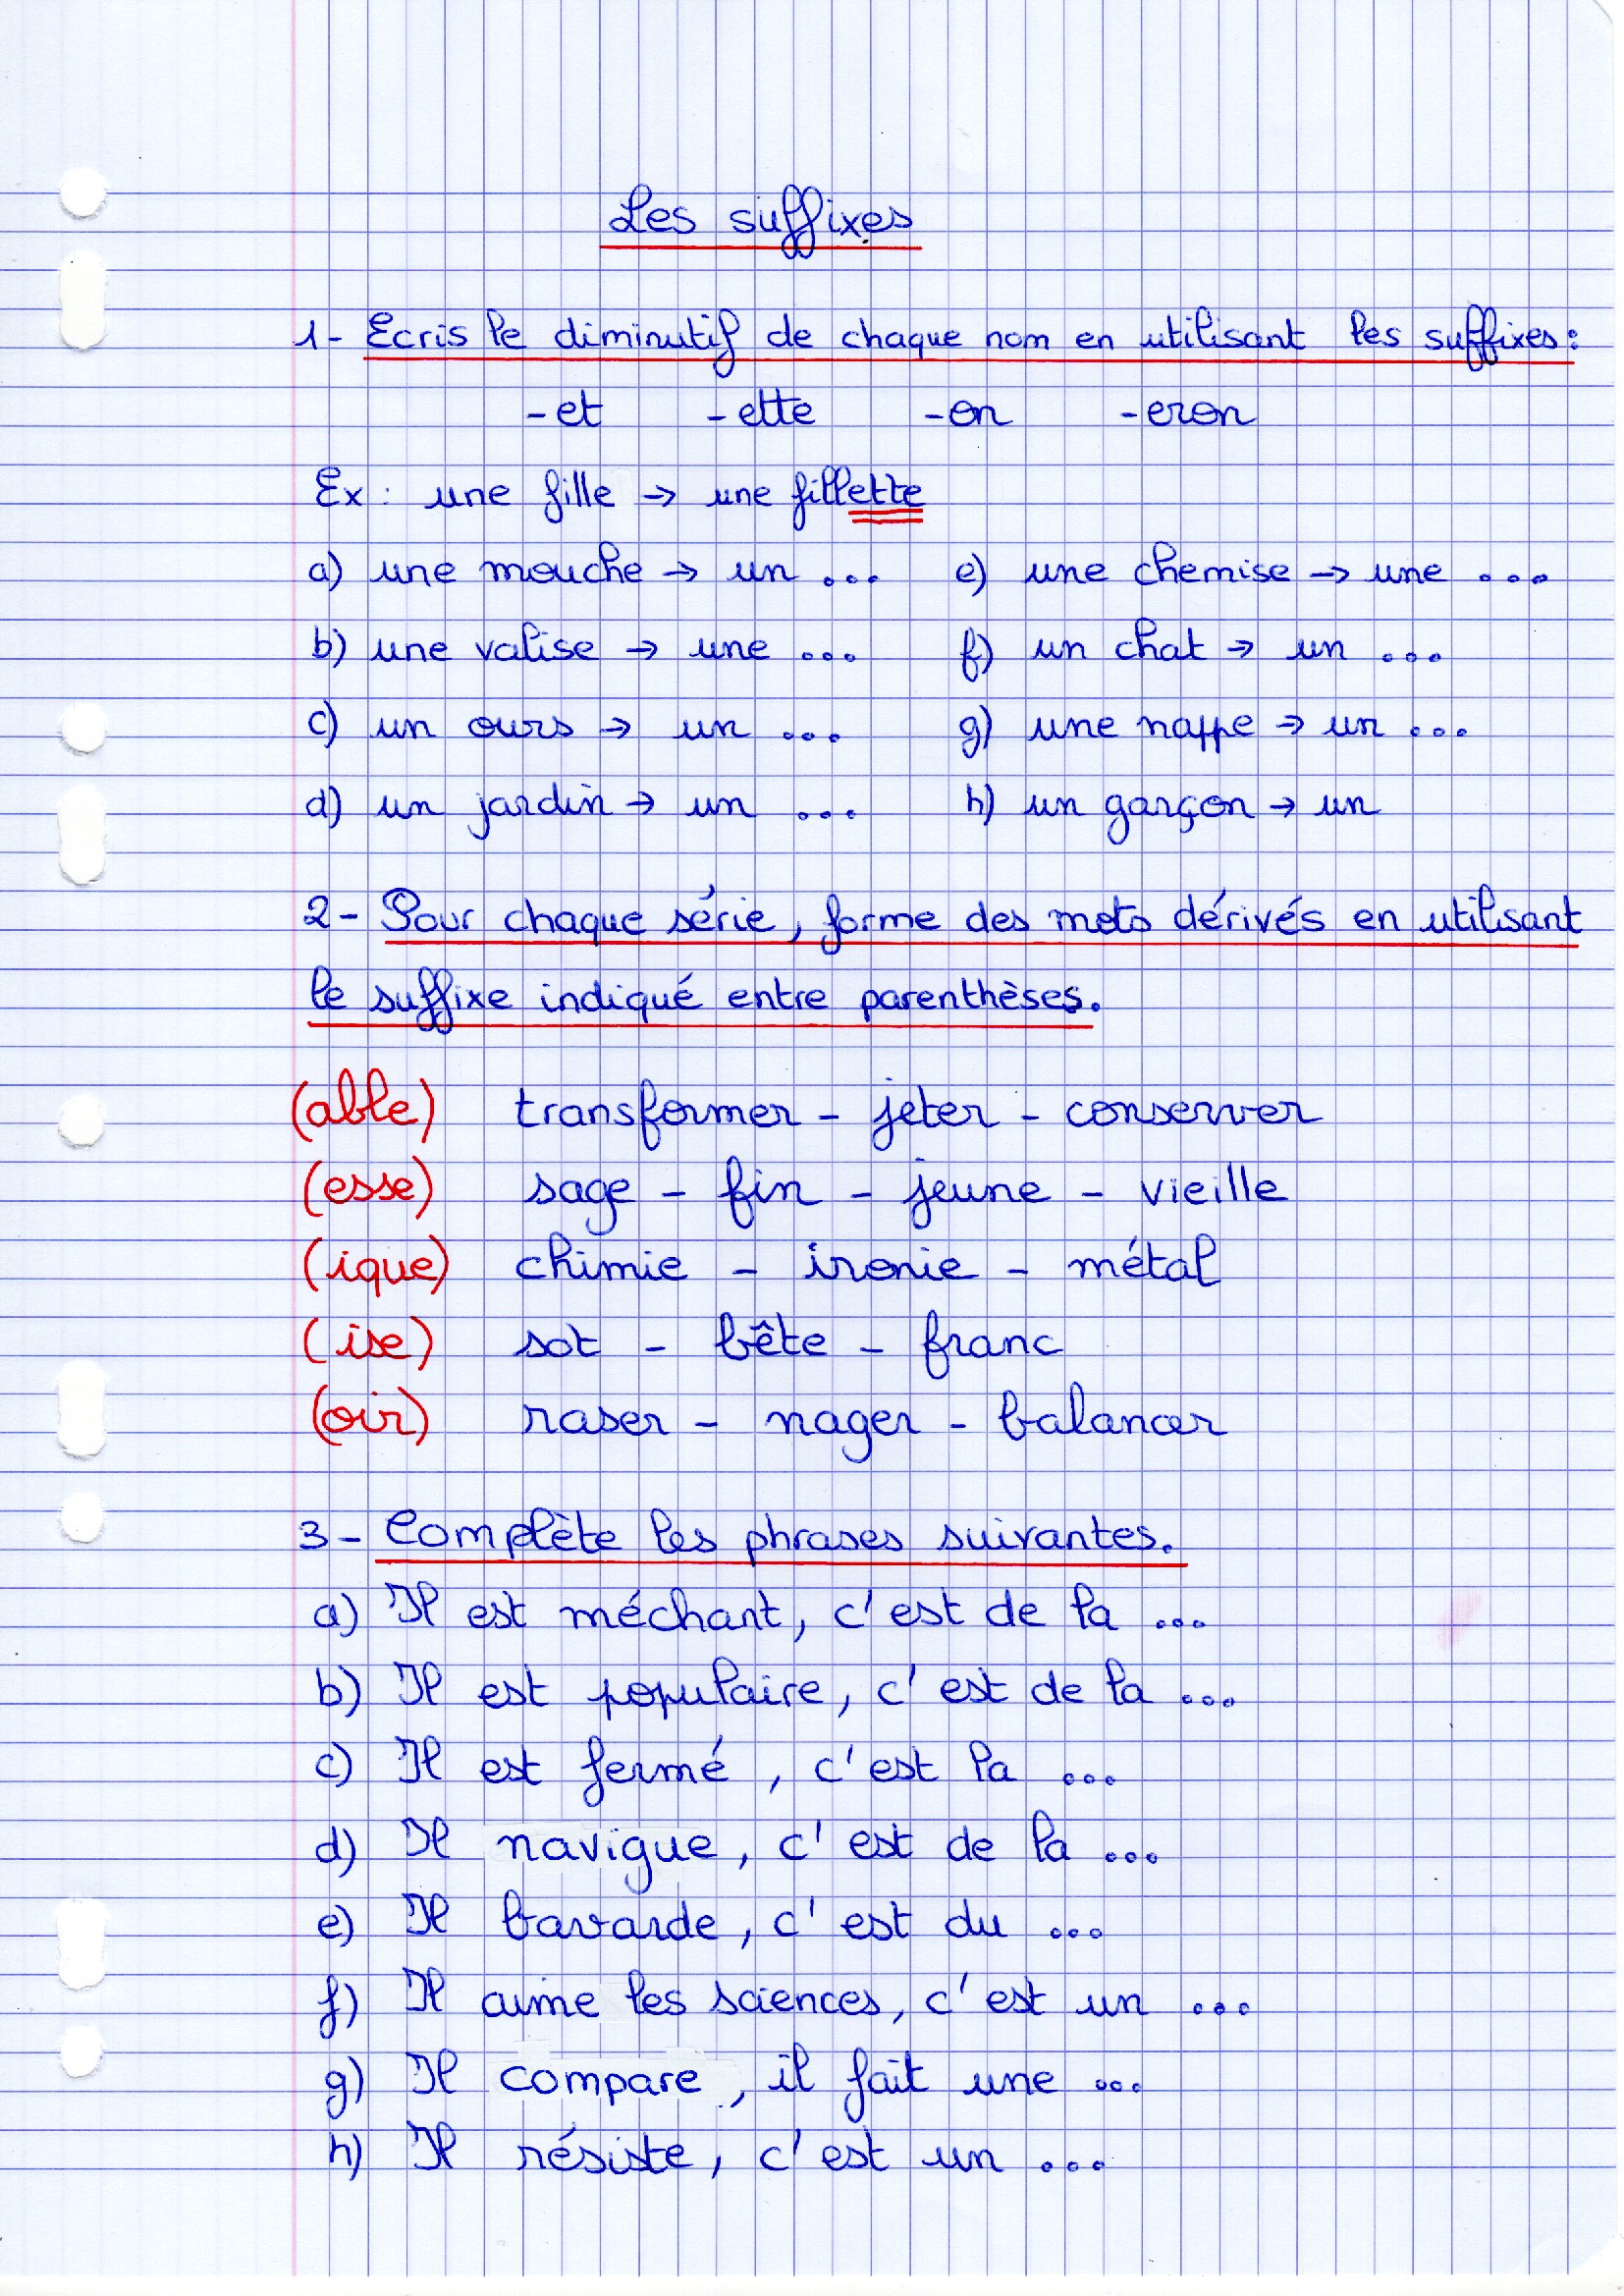 Les suffixes
1- Ecris le diminutif de chaque nom en utilisant les suffixes :
-et -ette -on -eron
Ex : une fille → une fillette
a) une mouche → un ... e) une chemise → une ...
b) une valise → une ... f) un chat → un ...
c) un ours → un ... g) une nappe → un ...
d) un jardin → un ... h) un garçon → un
2- Pour chaque série, forme des mots dérivés en utilisant
le suffixe indiqué entre parenthèses.
(able) transformer - jeter - conserver
(esse) sage - fin - jeune - vieille
(ique) chimie - ironie - métal
(ise) sot - bête - franc
(oir) raser - nager - balancer
3- Complète les phrases suivantes.
a) Il est méchant, c'est de la ...
b) Il est populaire, c'est de la ...
c) Il est fermé, c'est la ...
d) Il navigue, c'est de la ...
e) Il bavarde, c'est du ...
f) Il aime les sciences, c'est un ...
g) Il compare, il fait une ...
h) Il résiste, c'est un ...